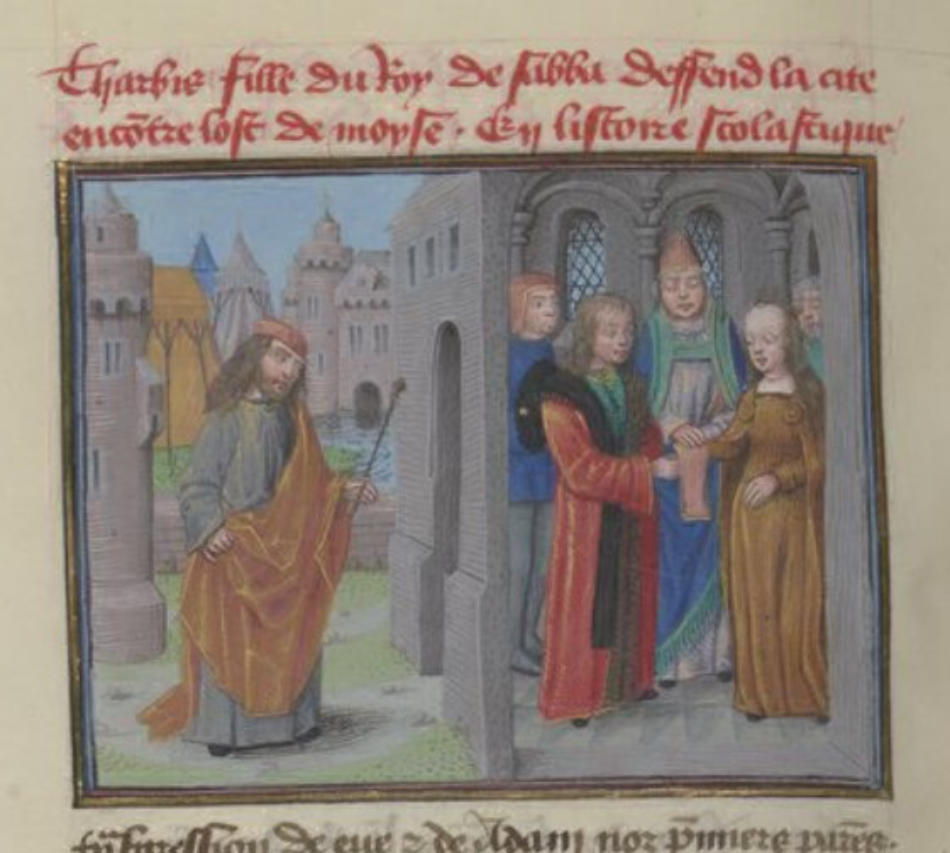 Tharbis fille du Roy de sabba deffend la cite
encõtre lost de moyse. En listoire scolastique
de eue ⁊ de Adam noz p̃miers parẽs.